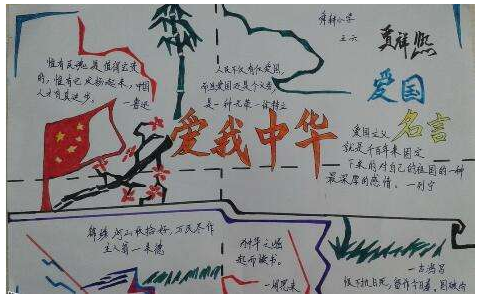 舜耕小学
五六
贾祥熙
惟有民魂是值得宝贵
的，惟有它发扬起来，中国
人才有真进步。
—鲁迅
人民不仅有权爱国，
而且爱国是个义务，
是一种光荣—徐特立
爱国
名言
爱我中华
爱国主义
就是千百年来固定
下来的对自己的祖国的一种
最深厚的感情。—列宁
锦绣河山收拾好，万民尽作
主人翁—朱德
为中华之崛
起而读书。
—周恩来
—吉鸿昌